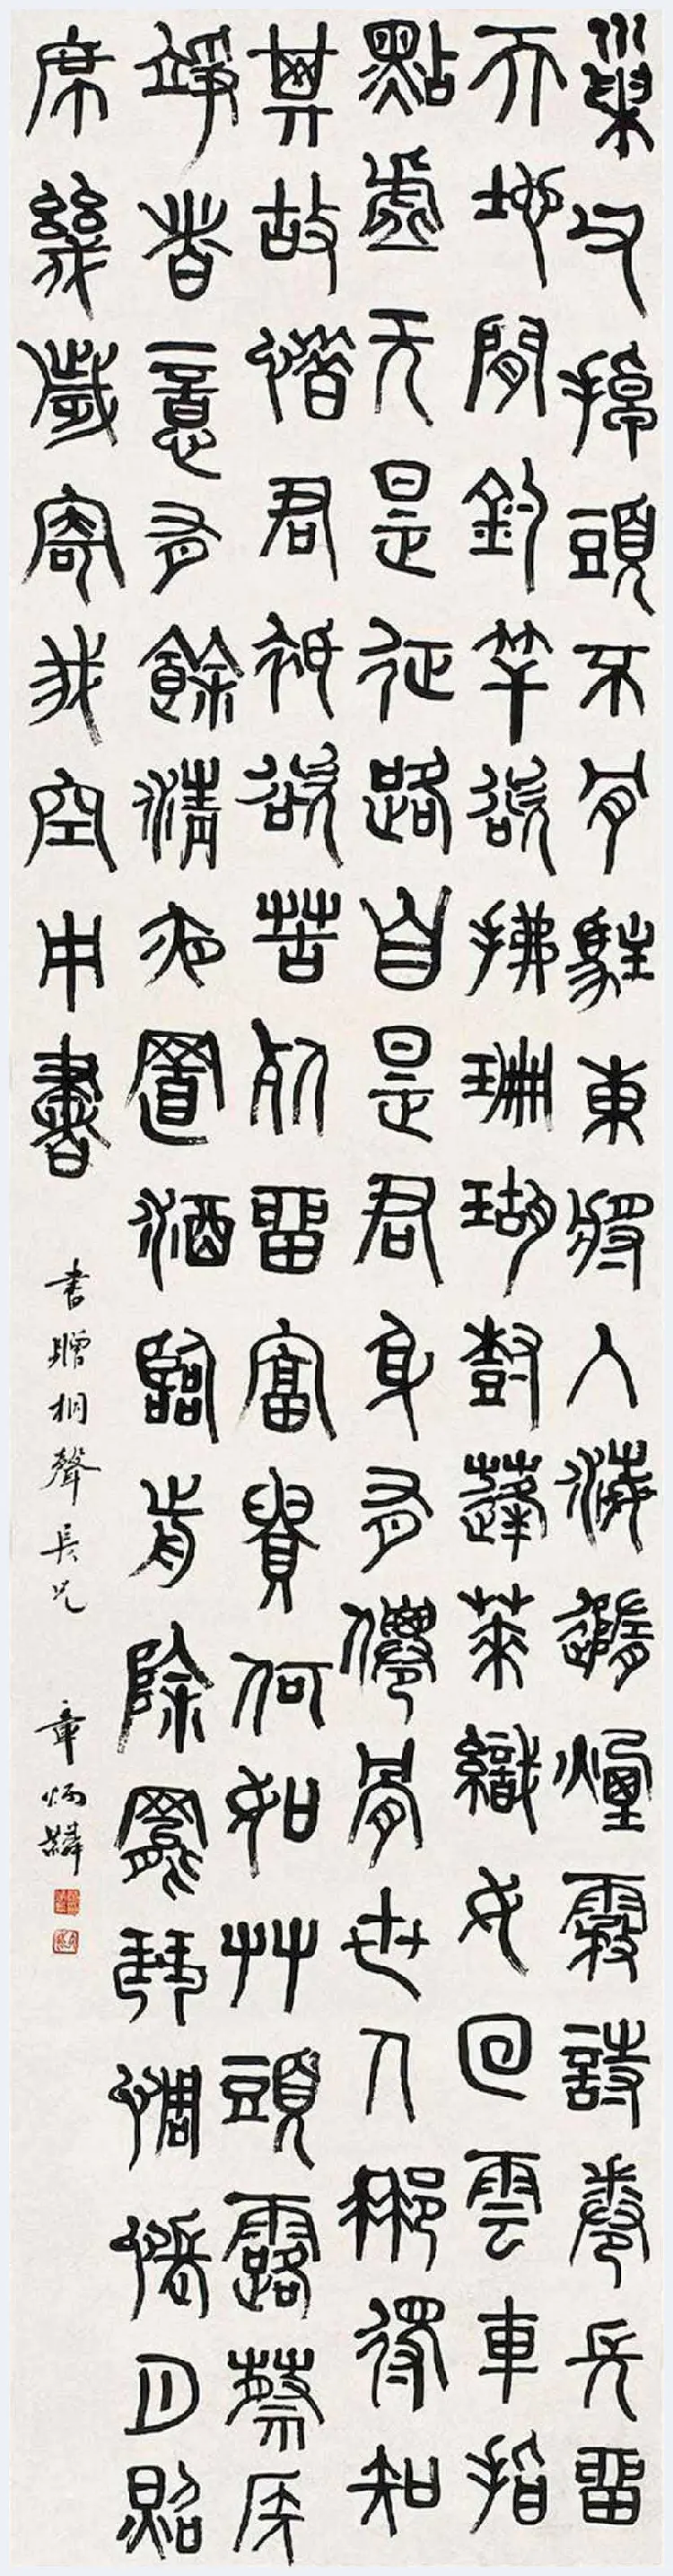 巢父掉頭不肯駐東將入海隨煙霧詩卷長留
天地間釣竿欲拂珊瑚樹蓬萊織女回雲車指
點虛无是征路自是君身有僊骨世人那得知
其故惜君祇欲苦死留富貴何如艸頭露蔡侯
竫者意有餘清夜置酒臨歬除罷琴惆悵月照
席幾歲寄我空中書
書贈桐聲長兄
章炳麟